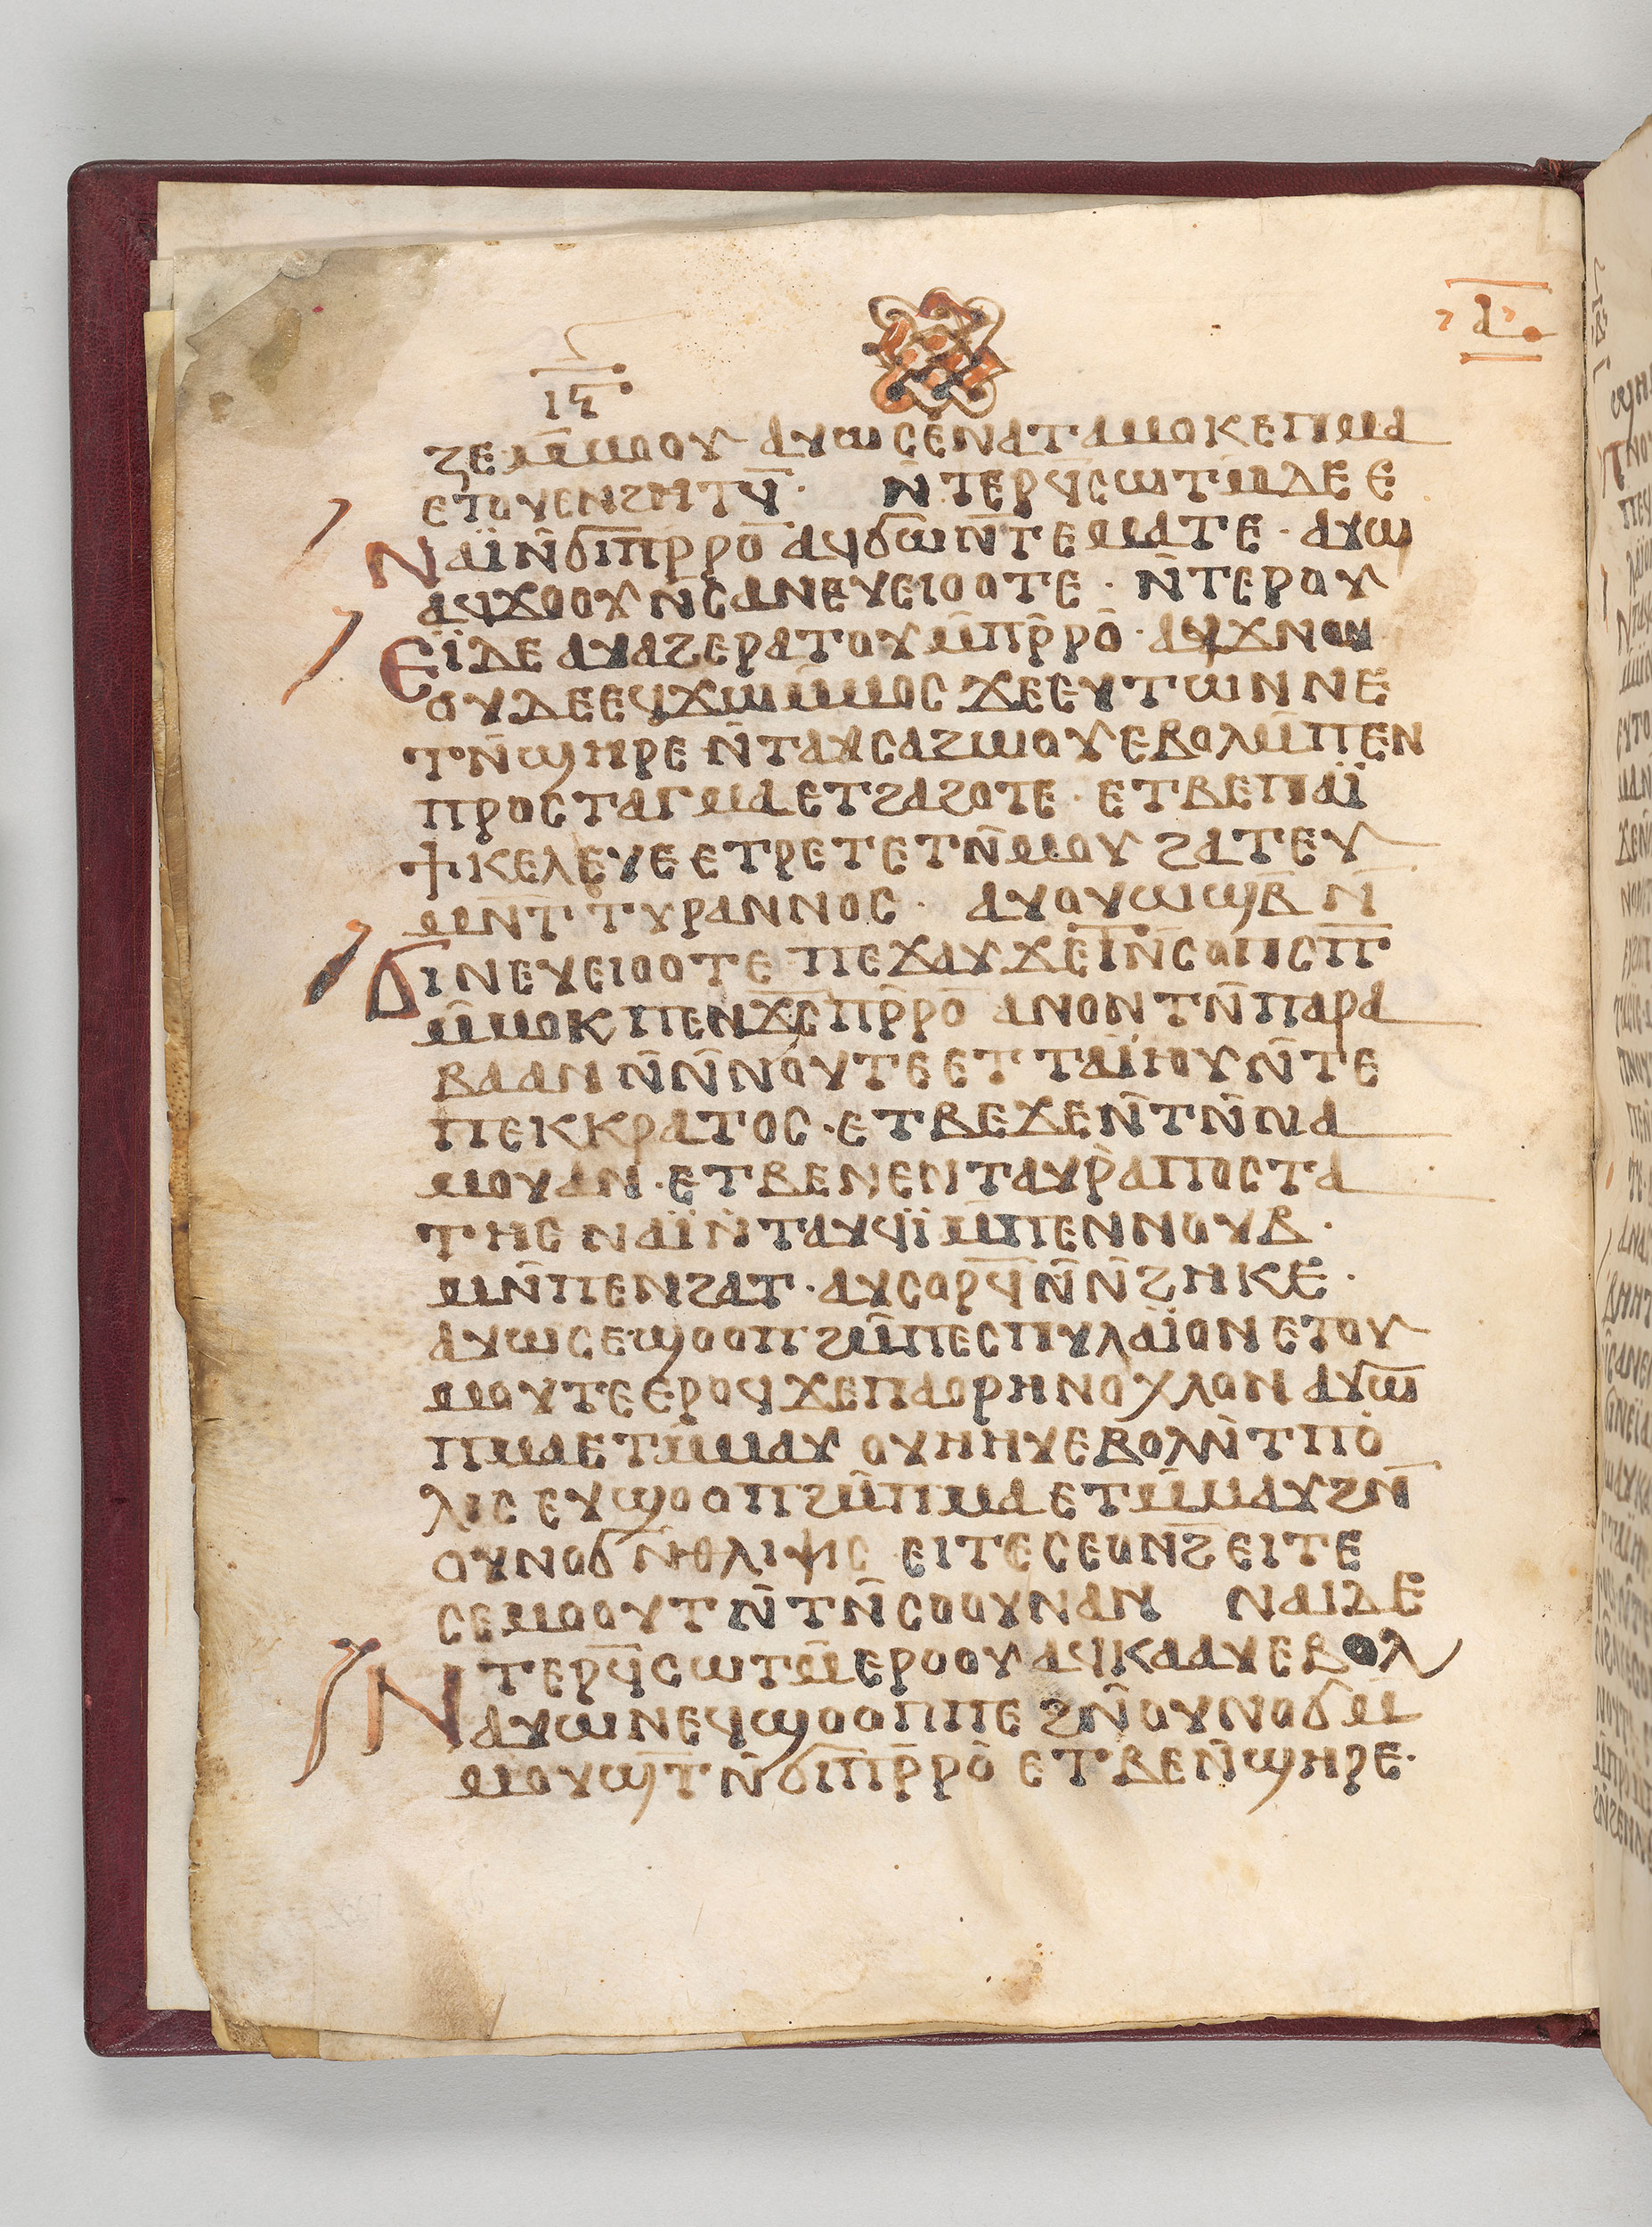 ⲓⲋ
ⲁ
ϩⲉ ⲙ̄ⲙⲟⲟⲩ ⲁⲩⲱ ⲥⲉⲛⲁⲧⲁⲙⲟⲕ ⲉⲡⲙⲁ
ⲉⲧⲟⲩⲉⲛϩⲏⲧϥ̄· ⲛ̄ⲧⲉⲣϥⲥⲱⲧⲙ ⲇⲉ ⲉ
ⲛⲁⲓ̈ ⲛ̄ϭⲓⲡⲣ̄ⲣⲟ̄ ⲁϥϭⲱⲛ̄ⲧ ⲉⲙⲁⲧⲉ · ⲁⲩⲱ
ⲁϥϫⲟⲟⲩ ⲛ̄ⲥⲁⲛⲉⲩⲉⲓⲟⲟⲧⲉ · ⲛ̄ⲧⲉⲣⲟⲩ
ⲉⲓ̈ ⲇⲉ ⲁⲩⲁϩⲉⲣⲁⲧⲟⲩ ⲙ̄ⲡⲣ̄ⲣⲟ̄ · ⲁϥϫⲛⲟⲩ
ⲟⲩ ⲇⲉ ⲉϥϫⲱ ⲙ̄ⲙⲟⲥ ϫⲉⲉⲩⲧⲱⲛ ⲛⲉ
ⲧⲟⲛ̄ϣⲏⲣⲉ ⲛ̄ⲧⲁⲩⲥⲁϩⲱⲟⲩ ⲉⲃⲟⲗ ⲙ̄ⲡⲉⲛ
ⲡⲣⲟⲥⲧⲁⲅⲙⲁ ⲉⲧϩⲁϩⲟⲧⲉ · ⲉⲧⲃⲉⲡⲁⲓ̈
ϯⲕⲉⲗⲉⲩⲉ ⲉⲧⲣⲉⲧⲉⲧⲛ̄ⲙⲟⲩ ϩⲁⲧⲉⲩ
ⲙⲛ̄ⲧ ⲧⲩⲣⲁⲛⲛⲟⲥ · ⲁⲩⲟⲩⲱϣⲃ̄ ⲛ̄
ϭⲓ ⲛⲉⲩⲉⲓⲟⲟⲧⲉ ⲡⲉϫⲁⲩ ϫⲉⲧⲛ̄ⲥⲟⲡⲥⲡ̄
ⲙ̄ⲙⲟⲕ ⲡⲉⲛϫⲥ̄ ⲡⲣ̄ⲣⲟ̄ ⲁⲛⲟⲛ ⲧⲛ̄ⲡⲁⲣⲁ
ⲃⲁ ⲁⲛ ⲛ̄ⲛ̄ⲛⲟⲩⲧⲉ ⲉⲧ ⲧⲁⲓ̈ⲏⲟⲩ ⲛ̄ⲧⲉ
ⲡⲉⲕⲕⲣⲁⲧⲟⲥ · ⲉⲧⲃⲉϫⲉⲛ̄ⲧⲛ̄ⲛⲁ
ⲙⲟⲩ ⲁⲛ · ⲉⲧⲃⲉ ⲛⲉⲛⲧⲁⲩⲣ̀ⲁⲡⲟⲥⲧⲁ
ⲧⲏⲥ ⲛⲁⲓ̈ ⲛ̄ⲧⲁⲩϥⲓ̈ ⲙ̄ⲡⲉⲛⲛⲟⲩⲃ ·
ⲙⲛ̄ⲡⲉⲛϩⲁⲧ · ⲁⲩⲥⲟⲣϥ̄ ⲛ̄ⲛ̄ϩⲏⲕⲉ ·
ⲁⲩⲱ ⲥⲉϣⲟⲟⲡ ϩⲙ̄ⲡⲉⲥⲡⲩⲗⲁⲓ̈ⲟⲛ ⲉⲧⲟⲩ
ⲙⲟⲩⲧⲉ ⲉⲣⲟϥ ϫⲉⲡⲁⲟⲣⲏⲛⲟⲭⲗⲟⲛ ⲁⲩⲱ̄
ⲡⲙⲁ ⲉⲧⲙ̄ⲙⲁⲩ ⲟⲩⲏⲏⲩ ⲉⲃⲟⲗ ⲛ̀ⲧⲡⲟ
ⲗⲓⲥ ⲉⲩϣⲟⲟⲡ ϩⲙ̄ⲡⲙⲁ ⲉⲧⲙ̄ⲙⲁⲩ ϩⲛ̄
ⲟⲩⲛⲟϭ ⲛ̄ⲑⲗⲓⲯⲓⲥ ⲉⲓⲧⲉ ⲥⲉⲟⲛϩ̄ ⲉⲓⲧⲉ
ⲥⲉⲙⲟⲟⲩⲧ ⲛ̄ⲧⲛ̄ⲥⲟⲟⲩⲛ ⲁⲛ ⲛⲁⲓ ⲇⲉ
ⲛⲧⲉⲣϥ̄ⲥⲱⲧⲙ̄ ⲉⲣⲟⲟⲩ ⲁϥⲕⲁⲁⲩ ⲉⲃⲟⲗ
ⲁⲩⲱ ⲛⲉϥϣⲟⲟⲡ ⲡⲉ ϩⲛ̄ⲟⲩⲛⲟϭ ⲙ̄
ⲙⲟⲩϣⲧ̄ ⲛ̄ϭⲓⲡⲣ̄ⲣⲟ̄ ⲉⲧⲃⲉ ⲛ̄ϣⲏⲣⲉ·